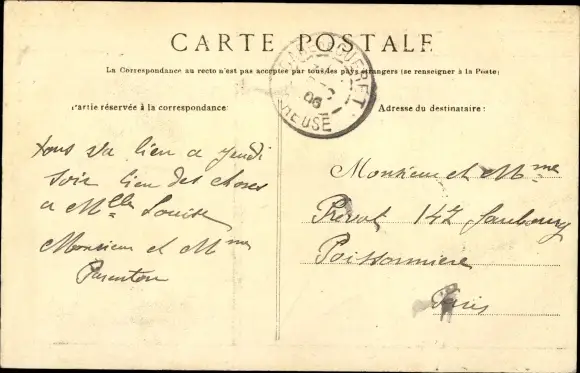 CARTE POSTALE
La Correspondance au recto n'est pas acceptée par tous les pays étrangers (se renseigner à la Poste)
Partie réservée à la correspondance
Adresse du destinataire :
GUERET
06
CREUSE
tous va bien a jeudi
soir bien des choses
a Mlle Louise
Monsieur et Mme
Parenton
Monsieur et Mme
Prevot 147 faubourg
Poissonniere
Paris